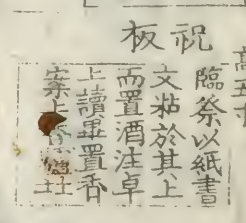 高五寸
祝板
臨祭以紙書
文粘於其上
而置酒注卓
上讀畢置香
案上